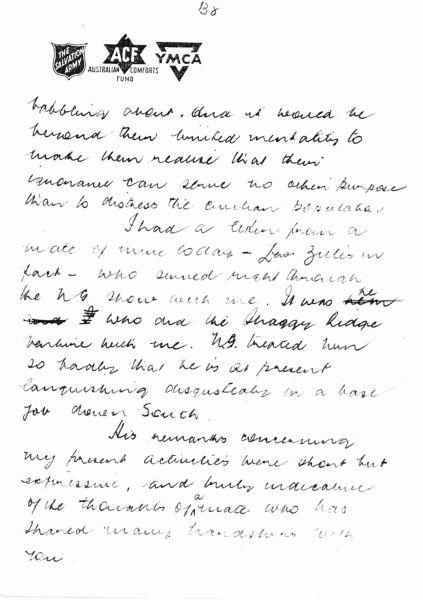 B8
THE SALVATION ARMY
ACF
AUSTRALIAN COMFORTS FUND
YMCA
babbling about. And it would be
beyond their limited mentality to
make them realise that their
ignorance can serve no other purpose
than to distress the civilian population.
I had a letter from a
mate of mine today - Lew in
fact - who served right through
the N.G. show with me. It was he
who did the Shaggy Ridge
with me. N.G. treated him
so badly that he is at present
languishing disgustedly in a base
job down South.
His remarks concerning
my present activities were short but
expressive, and truly indicative
of the thoughts of a mate who has
shared many hardships with
you.